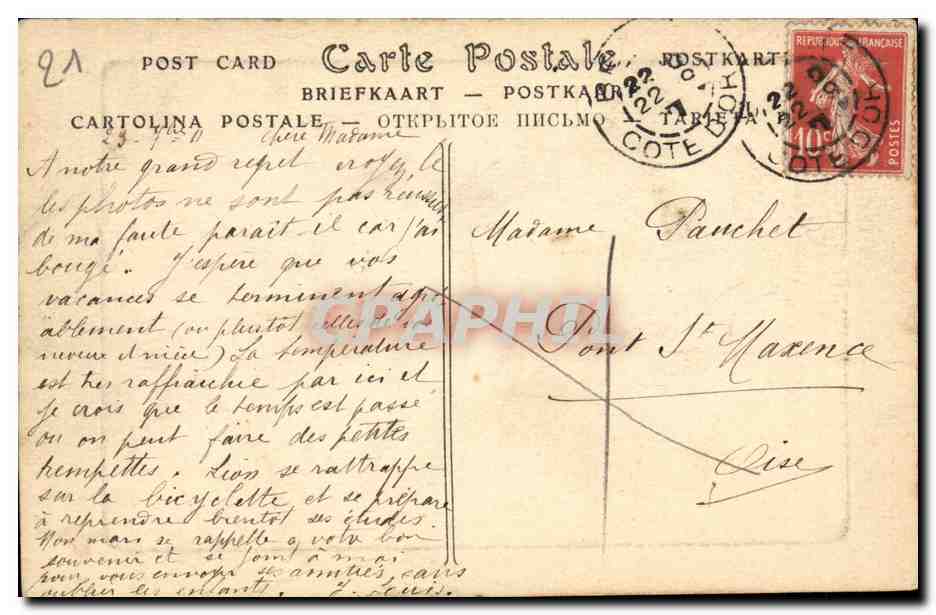 21
POST CARD Carte Postale POSTKARTE
BRIEFKAART — POSTKAART
CARTOLINA POSTALE — ОТКРЫТОЕ ПИСЬМО — TARJETA
REPUBLIQUE FRANÇAISE
10c
POSTES
COTE D'OR
22
22
COTE D'OR
22
22
23 - 7bre 11 chère Madame
A notre grand regret voyez le
les photos ne sont pas réussies
de ma faute paraît il car j'ai
bougé. J'espère que vos
vacances se terminent agré
ablement (ou plustot celles de vos
neveux et nièce) La température
est très raffraichie par ici et
je crois que le temps est passé
ou on peut faire des petites
trempettes. Lion se rattrappe
sur la bicyclette et se prépare
à reprendre bientot ses études
Mon mari se rappelle a votre bon
souvenir et se joint à moi
pour vous envoyer ses amitiés sans
oublier les enfants. J. Louis.
Madame Pauchet
Pont St Maxence
Oise
CPAPHIL